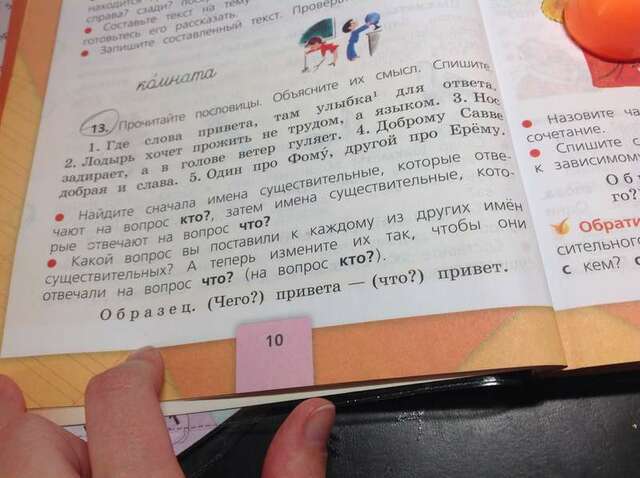 справа? сзади?
• Составьте текст на тему
готовьтесь его рассказать.
• Запишите составленный текст.
комната
13. Прочитайте пословицы. Объясните их смысл. Спишите.
1. Где слова привета, там улыбка¹ для ответа.
2. Лодырь хочет прожить не трудом, а языком. 3. Нос
задирает, а в голове ветер гуляет. 4. Доброму Савве
добрая и слава. 5. Один про Фому, другой про Ерёму.
• Найдите сначала имена существительные, которые отве-
чают на вопрос кто?, затем имена существительные, кото-
рые отвечают на вопрос что?
• Какой вопрос вы поставили к каждому из других имён
существительных? А теперь измените их так, чтобы они
отвечали на вопрос что? (на вопрос кто?).
Образец. (Чего?) привета — (что?) привет.
10
• Назовите
сочетание.
• Спишите
к зависимом
го?
Обрати
сительного
с кем?